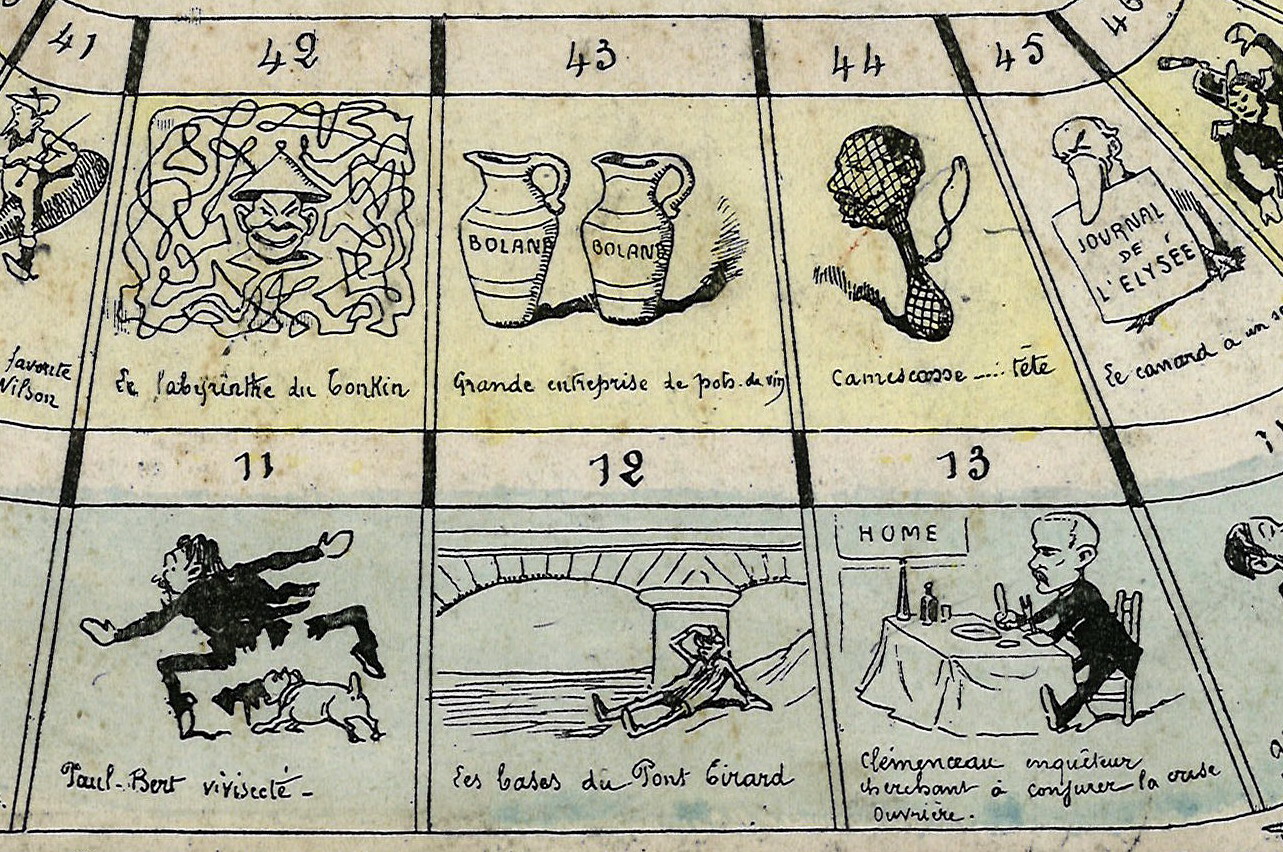 41
42
43
44
45
46
BOLAND
BOLAND
JOURNAL
DE
L'ELYSÉE
favorite
Wilson
Le labyrinthe du Tonkin
Grande entreprise de pots-de-vin
Camescasse ..... tête
Le canard à un
11
12
13
HOME
Paul-Bert vivisecté -
Les bases du Pont Tirard
Clémenceau enquêteur
cherchant à conjurer la crise
Ouvrière.